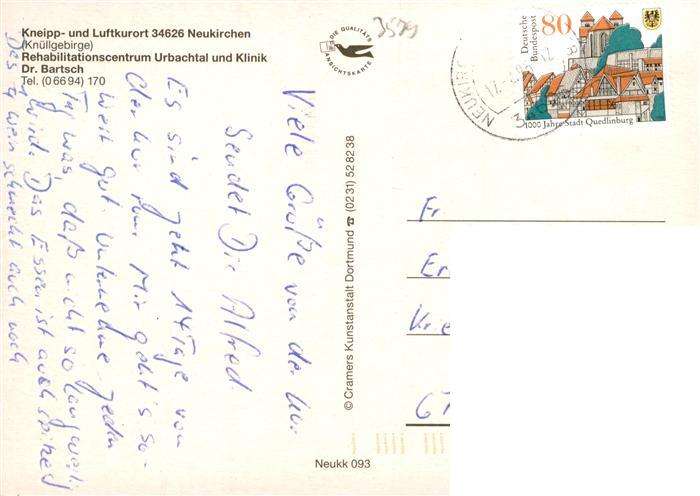 Kneipp- und Luftkurort 34626 Neukirchen
(Knüllgebirge)
Rehabilitationscentrum Urbachtal und Klinik
Dr. Bartsch
Tel. (0 66 94) 170
DIE QUALITÄTS
ANSICHTSKARTE
3579
Deutsche
Bundespost
80
1000 Jahre Stadt Quedlinburg
NEUKIR
Viele Grüße von der Kur
Sendet Dir Alfred.
Es sind jetzt 14 Tage von
der Kur rum. Mir geht's so-
weit gut. Unternehme jeden
Tag was, daß nicht so langweilig
wird. Das Essen ist auch spitze
Der wein schmeckt auch noch
© Cramers Kunstanstalt Dortmund ☎ (0231) 528238
Fr
Er
Krie
67
Neukk 093